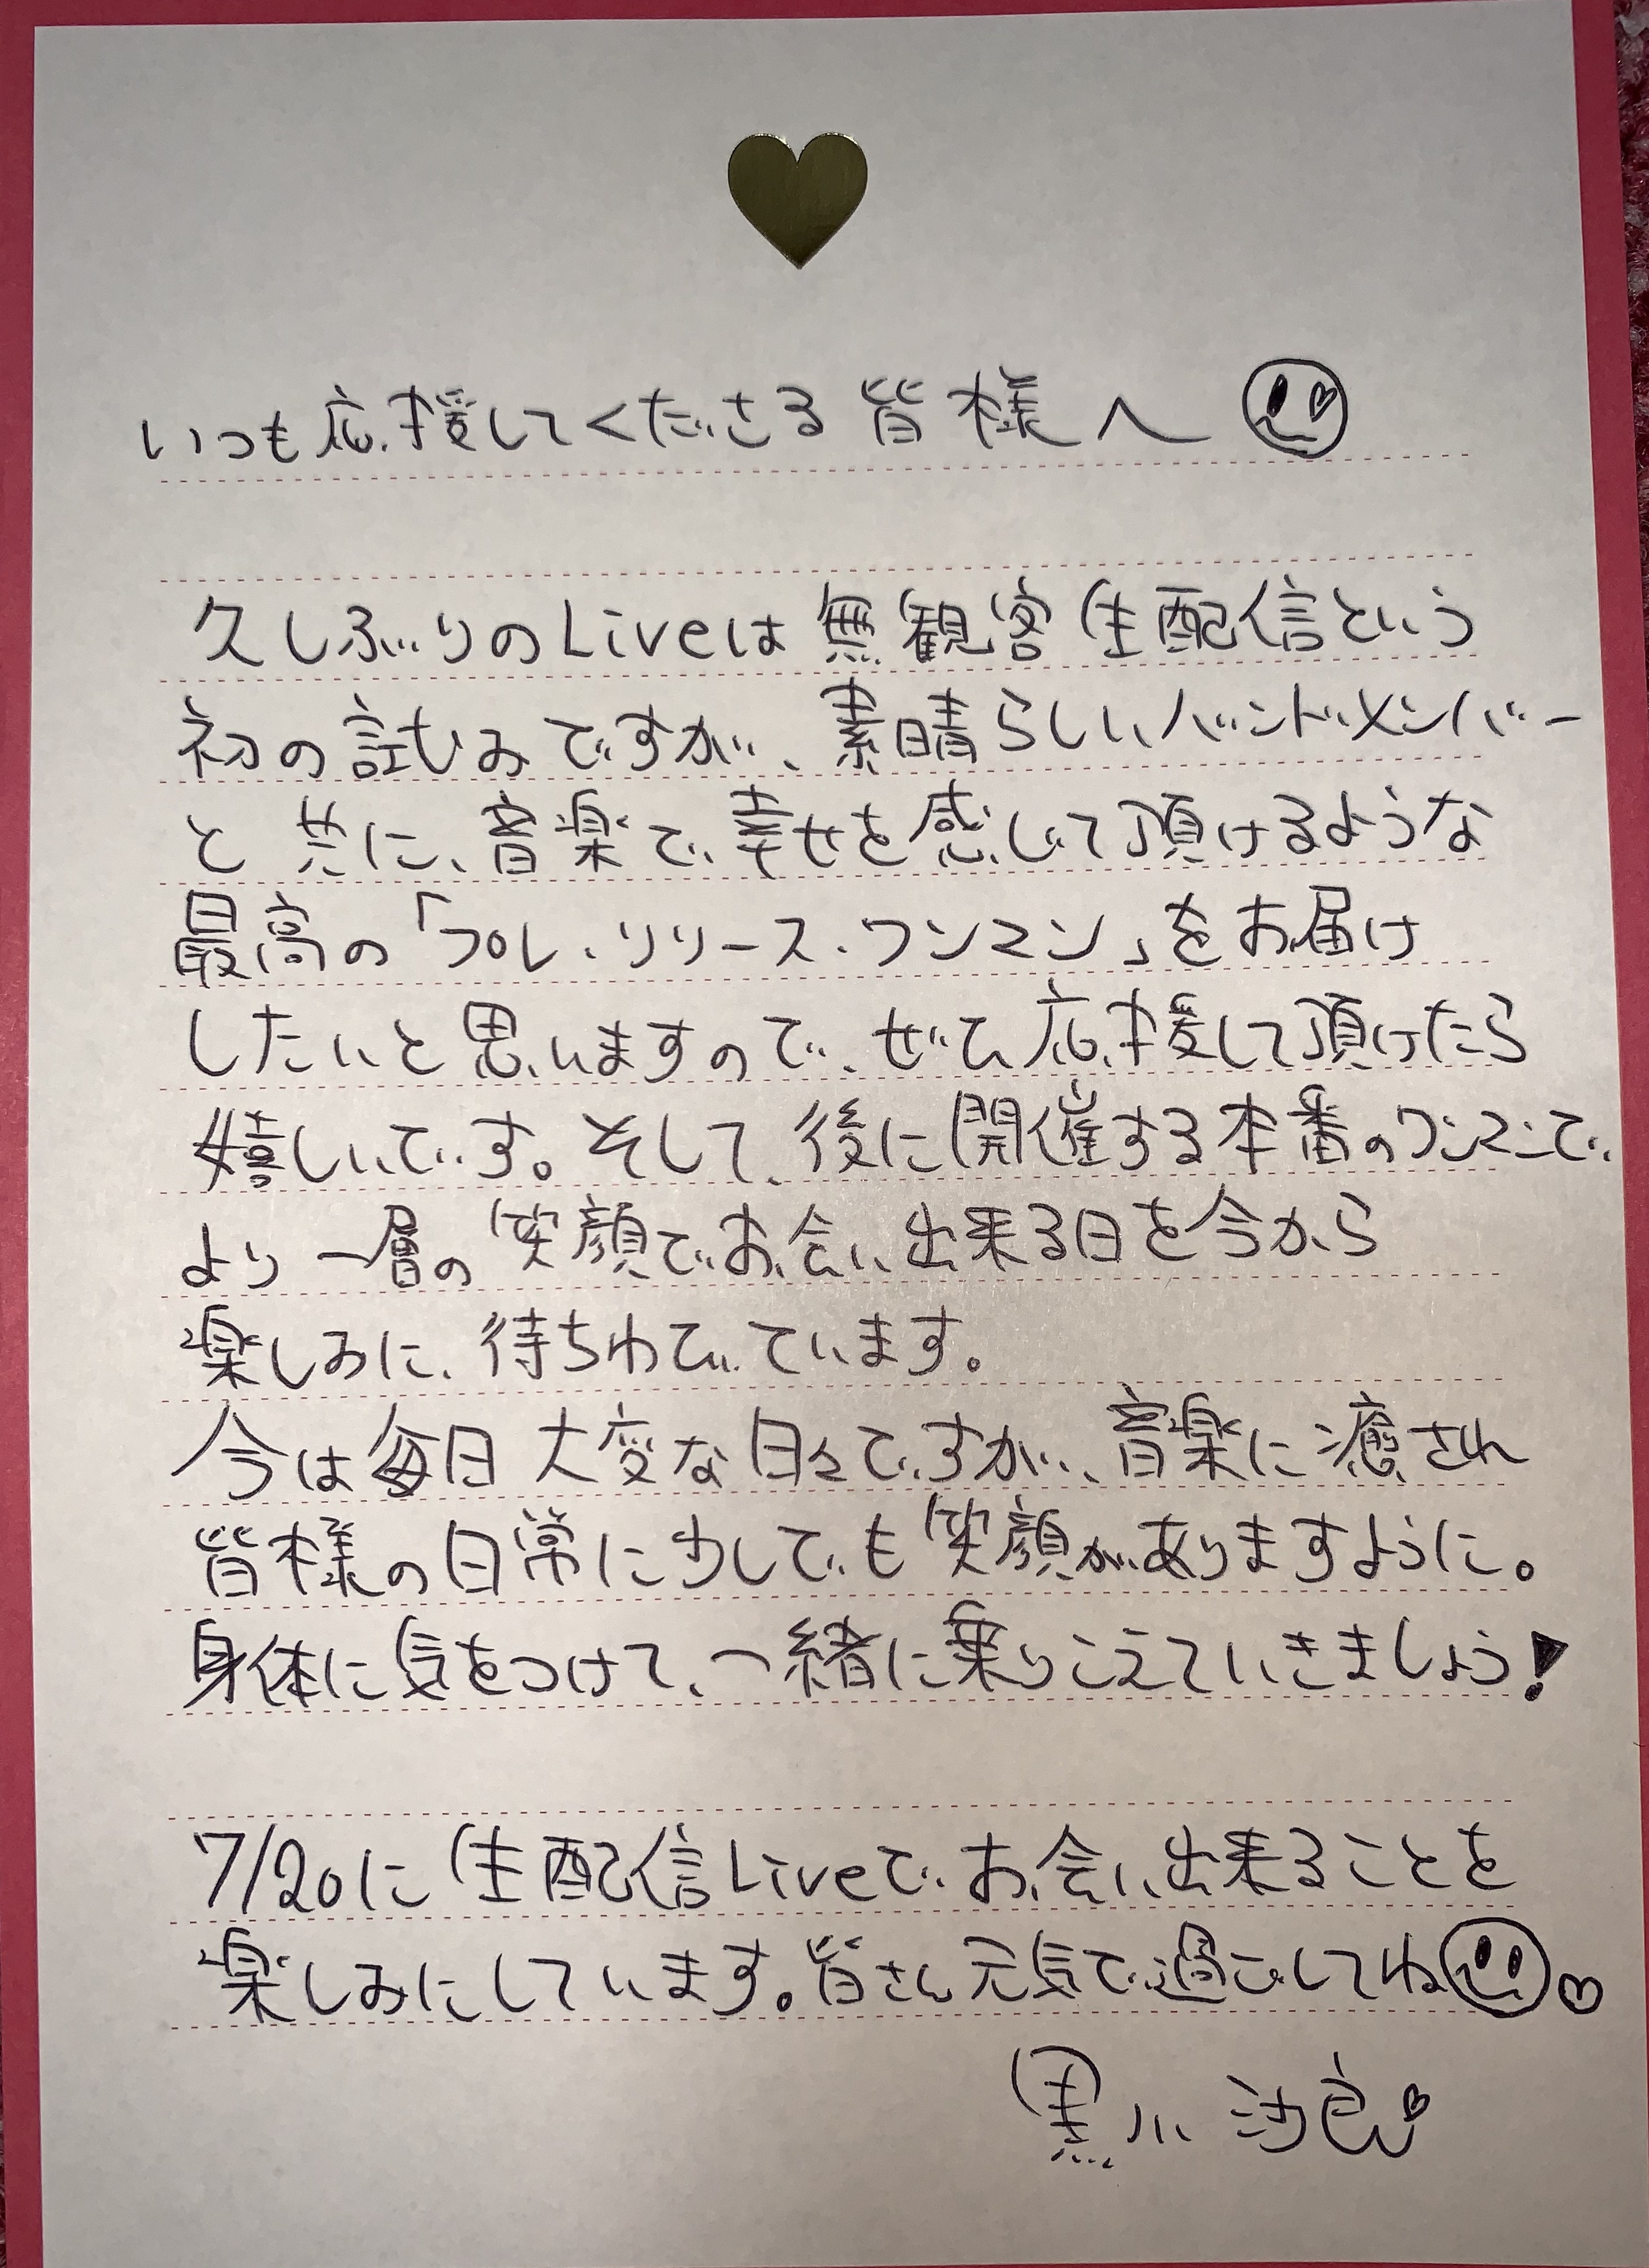 いつも応援してくださる皆様へ
久しぶりのLiveは無観客生配信という
初の試むみですが、素晴らしいバンドメンバー
と共に、音楽で幸せを感じて頂けるような
最高の「プレ・リリース・ワンマン」をお届け
したいと思いますので、ぜひ応援して頂けたら
嬉しいです。そして、後に開催する本番のワンマンで、
より一層の笑顔でお会い出来る日を今から
楽しみに、待ちわびています。
今は毎日大変な日々ですが、音楽に癒され
皆様の日常に少しでも笑顔がありますように。
身体に気をつけて、一緒に乗りこえていきましょう!
7/20に生配信Liveでお会い出来ることを
楽しみにしています。皆さん元気で過ごしてね♡
黒川沙良♡